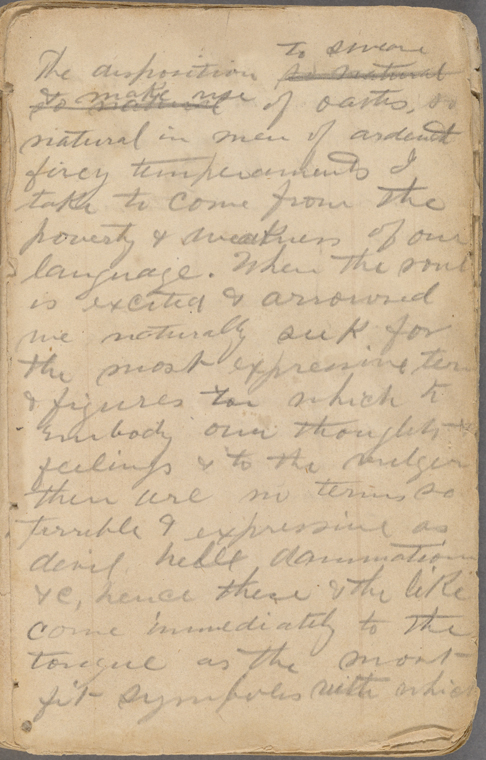 to swear
The disposition so natural
to natural & make use of oaths, so
natural in men of ardent
firey temperaments I
take to come from the
poverty & weakness of our
language. When the soul
is excited & arroused
we naturally seek for
the most expressive term
& figures in which to
embody our thoughts &
feelings & to the vulger
there are no terms so
terrible & expressive as
devil hell dammation
&c, hence these & the like
come immediately to the
tongue as the most
fit symboles with which